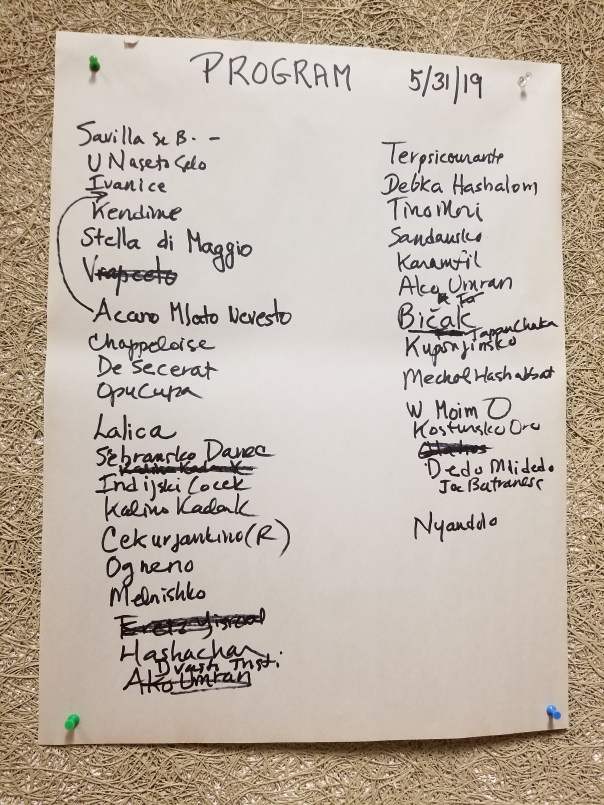 PROGRAM 5/31/19
Savilla Se B. -
U Naseto Selo
Ivanice
Kendime
Stella di Maggio
Vrapceto
Acano Mlato Nevesto
Chappeloise
De Secerat
Opucupa
Lalica
Sebransko Danec
Kalino Kadak
Indijski Cocek
Kalino Kadak
Cekurjankino (R)
Ogneno
Melnishko
Eretz Yisrael
Hashachar
Dvash
Ako Umran
Terpsicourante
Debka Hashalom
Tino Mori
Sandansko
Karamfil
Ako Umran
Bičak
Tappuchaka
Kuponjinsko
Mechol Hashabbat
W Moim O
Kostursko Oro
Dedo Mili dedo
Joc Batranesc
Nyandolo